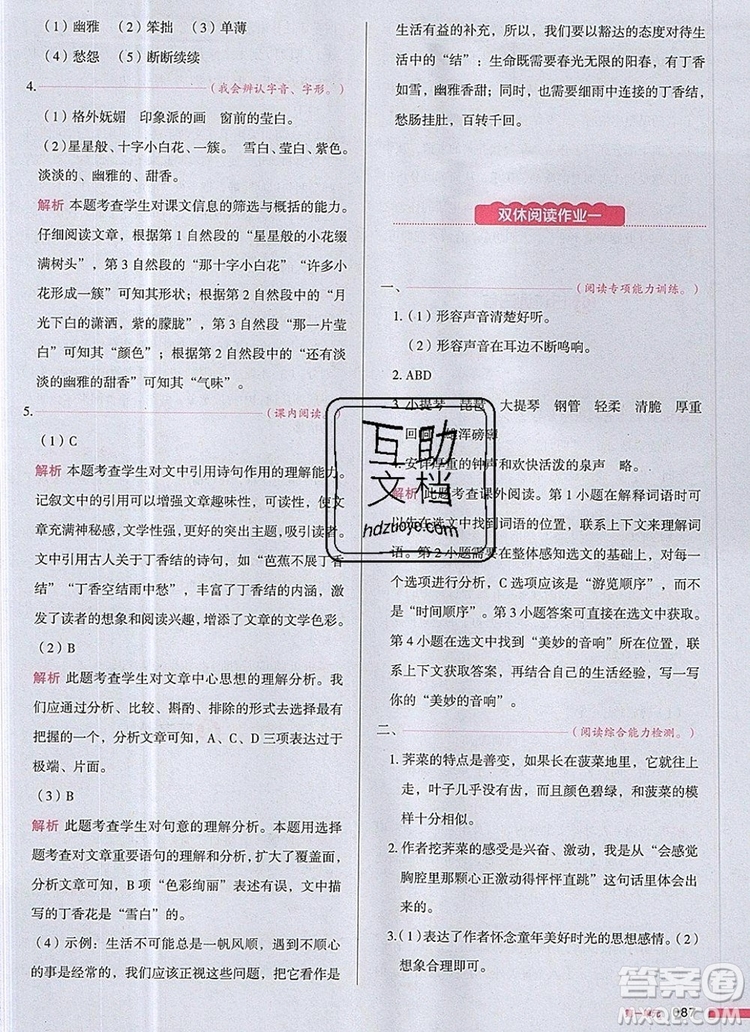 （1）幽雅　（2）笨拙　（3）单薄
（4）愁怨　（5）断断续续
4.
（我会辨认字音、字形。）
（1）格外妩媚　印象派的画　窗前的莹白。
（2）星星般、十字小白花、一簇。　雪白、莹白、紫色。
淡淡的、幽雅的、甜香。
解析 本题考查学生对课文信息的筛选与概括的能力。
仔细阅读文章，根据第 1 自然段的“星星般的小花缀
满树头”，第 3 自然段的“那十字小白花”“许多小
花形成一簇”可知其“形状”；根据第 2 自然段的“月
光下白的潇洒，紫的朦胧”，第 3 自然段的“那一片莹
白”可知其“颜色”；根据第 1 自然段中的“还有淡
淡的幽雅的甜香”可知其“气味”。
5.
（课内阅读。
（1）C
解析 本题考查学生对文中引用诗句作用的理解能力。
记叙文中的引用可以增强文章趣味性，可读性，使文
章充满神秘感，意味性更好，更能突出主题，吸引读者。
文中引用古人关于丁香结的诗句，如“芭蕉不展丁香
结”“丁香空结雨中愁”，丰富了丁香结的内涵，激
发了读者的想象和阅读兴趣，增添了文章的文学色彩。
（2）B
解析 此题考查学生对文章中心思想的理解分析。我
们应通过分析、比较、斟酌、排除的形式去选择一个
把握大的一个，分析文章可知，A、C、D三项都过于
极端、片面。
（3）B
解析 此题考查学生对句意的理解分析。本题用选择
的形式对文章重要语句的理解和分析，扩大了覆盖面，
分析文章可知，B 项“色彩绚丽”表述有误，文中描
写的丁香花是“雪白”的。
（4）示例：生活不可能总是一帆风顺，遇到不顺心的
事是经常的，我们应该正视这些问题，把它看作是
生活有益的补充。所以，我们要以豁达的态度对待生
活中的“结”：既要想着春光无限的阳春，有丁香
如雪，幽雅香甜；同时，也要想着细雨中连接的丁香结，
愁肠挂肚，百转千回。
双休阅读作业一
一、
（阅读专项能力训练。）
1.（1）形容声音清楚好听。
（2）形容声音在耳边不断鸣响。
2. ABD
3. 小提琴　琵琶　大提琴　钢管　轻柔　清脆　厚重
回　雄浑磅礴
4. 安详厚重的钟声和欢快活泼的泉声　略。
解析 此题考查课外阅读。第 1 小题在解释词语时可
以先在选文中找到词语的位置，然后联系下文来理解词
语。第 2 小题需要在整体感知选文的基础上，对每一
个选项进行分析，C 选项应该是“游览顺序”，而不
是“时间顺序”。第 3 小题答案可在选文中获取。
第 4 小题可在选文中找到“美妙的音响”，联系
上下文获取答案，再结合自己的生活经验，写一写
你的“美妙的音响”。
二、
（阅读综合能力检测。）
1. 荠菜的特点是善变，如果它长在菠菜地里，看上
去，叶子几乎没有齿，而且颜色碧绿，和菠菜的
模样十分相像。
2. 作者挖荠菜的感受是兴奋、激动，我从“会感觉
胸腔里那颗心激动得怦怦直跳”这句话看出的。
3.（1）表达了作者怀念童年美好时光的思想感情。（2）
想象合理即可。
087
互助
文档
hdzuoye.com
答案圈
MXQE.COM